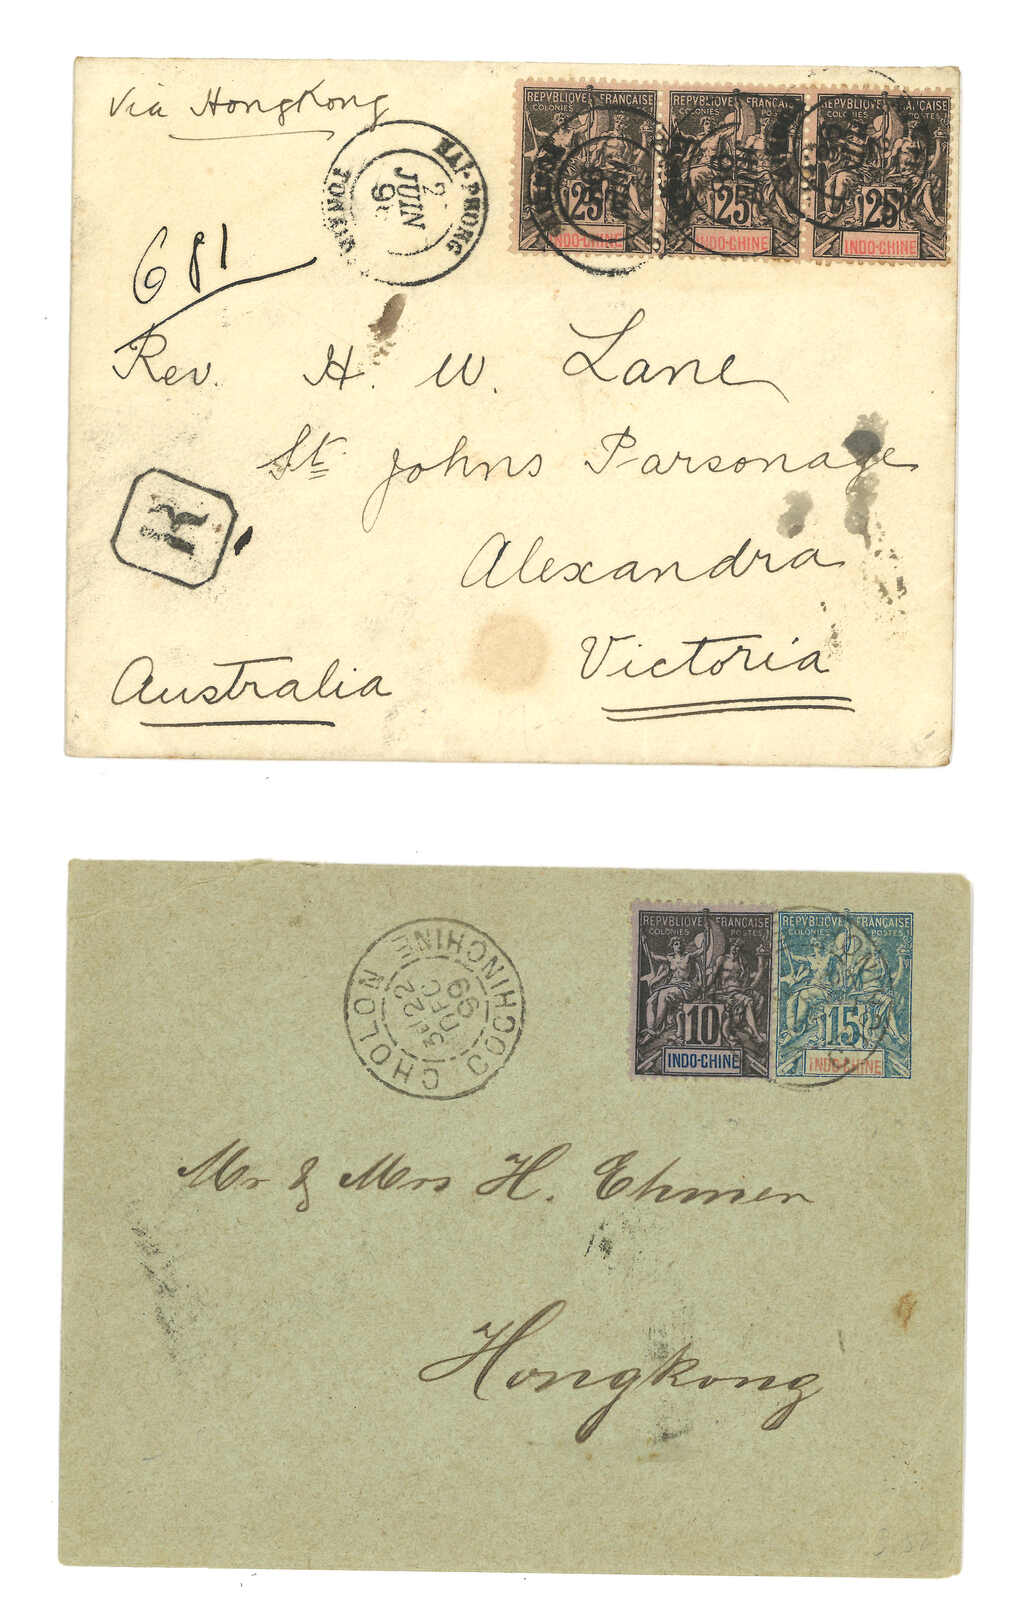 Via Hongkong
HAI-PHONG
TONKIN
JUIN
REPVBLIQVE FRANÇAISE
COLONIES
25
INDO-CHINE
REPVBLIQVE FRANÇAISE
COLONIES POSTES
25
INDO-CHINE
REPVBLIQVE FRANÇAISE
COLONIES POSTES
25
INDO-CHINE
681
Rev. H. W. Lane
St. Johns Parsonage
R
Alexandra
Victoria
Australia
CHOLON COCHINCHINE
3E 22
DEC
99
REPVBLIQVE FRANÇAISE
COLONIES POSTES
10
INDO-CHINE
REPVBLIQVE FRANÇAISE
COLONIES POSTES
15
INDO-CHINE
Mr & Mrs H. Ehmer
Hongkong